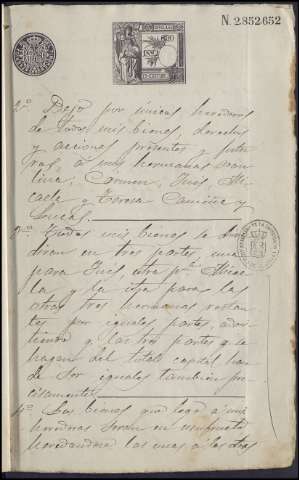 N. 2.852.652
2ª Dejo por únicas herederas
de todos mis bienes, derechos
y acciones presentes y futu
ras, á mis hermanas
Carmen, Inés, Mi
caela y Teresa Ramírez y
3ª Todos mis bienes se divi
dirán en tres partes, una
para Inés, otra pª Micae
la y la otra para las
otras tres hermanas restan
tes por iguales partes, advir
tiendo q. las tres partes q. se
hagan del total capital han
de ser iguales también pre
cisamente
4ª Los bienes que lego á mis
herederas serán en usufructo
heredándose las unas á las otras